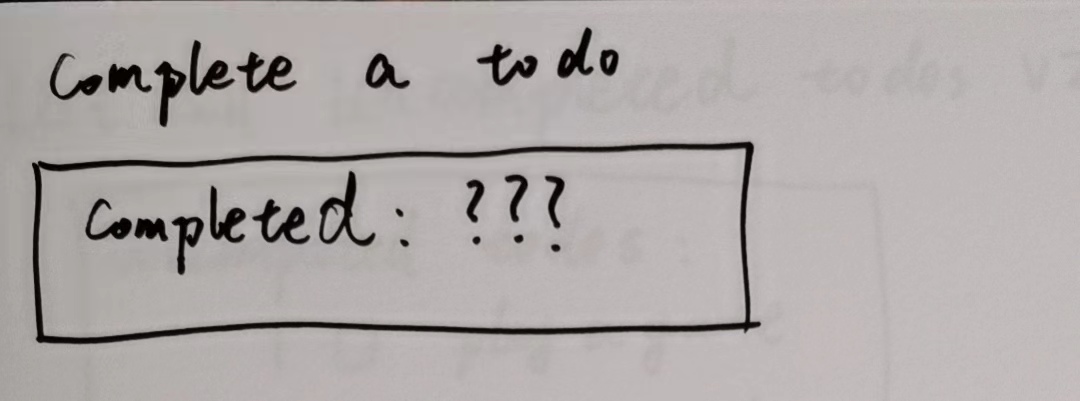 Complete a todo
Completed: ???